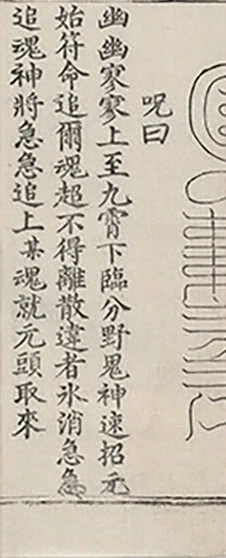 呪曰
幽幽寥寥上至九霄下臨分野鬼神速招元
始符命追爾魂超不得離散違者氷消急急
追魂神將急急追上某魂就元頭取來